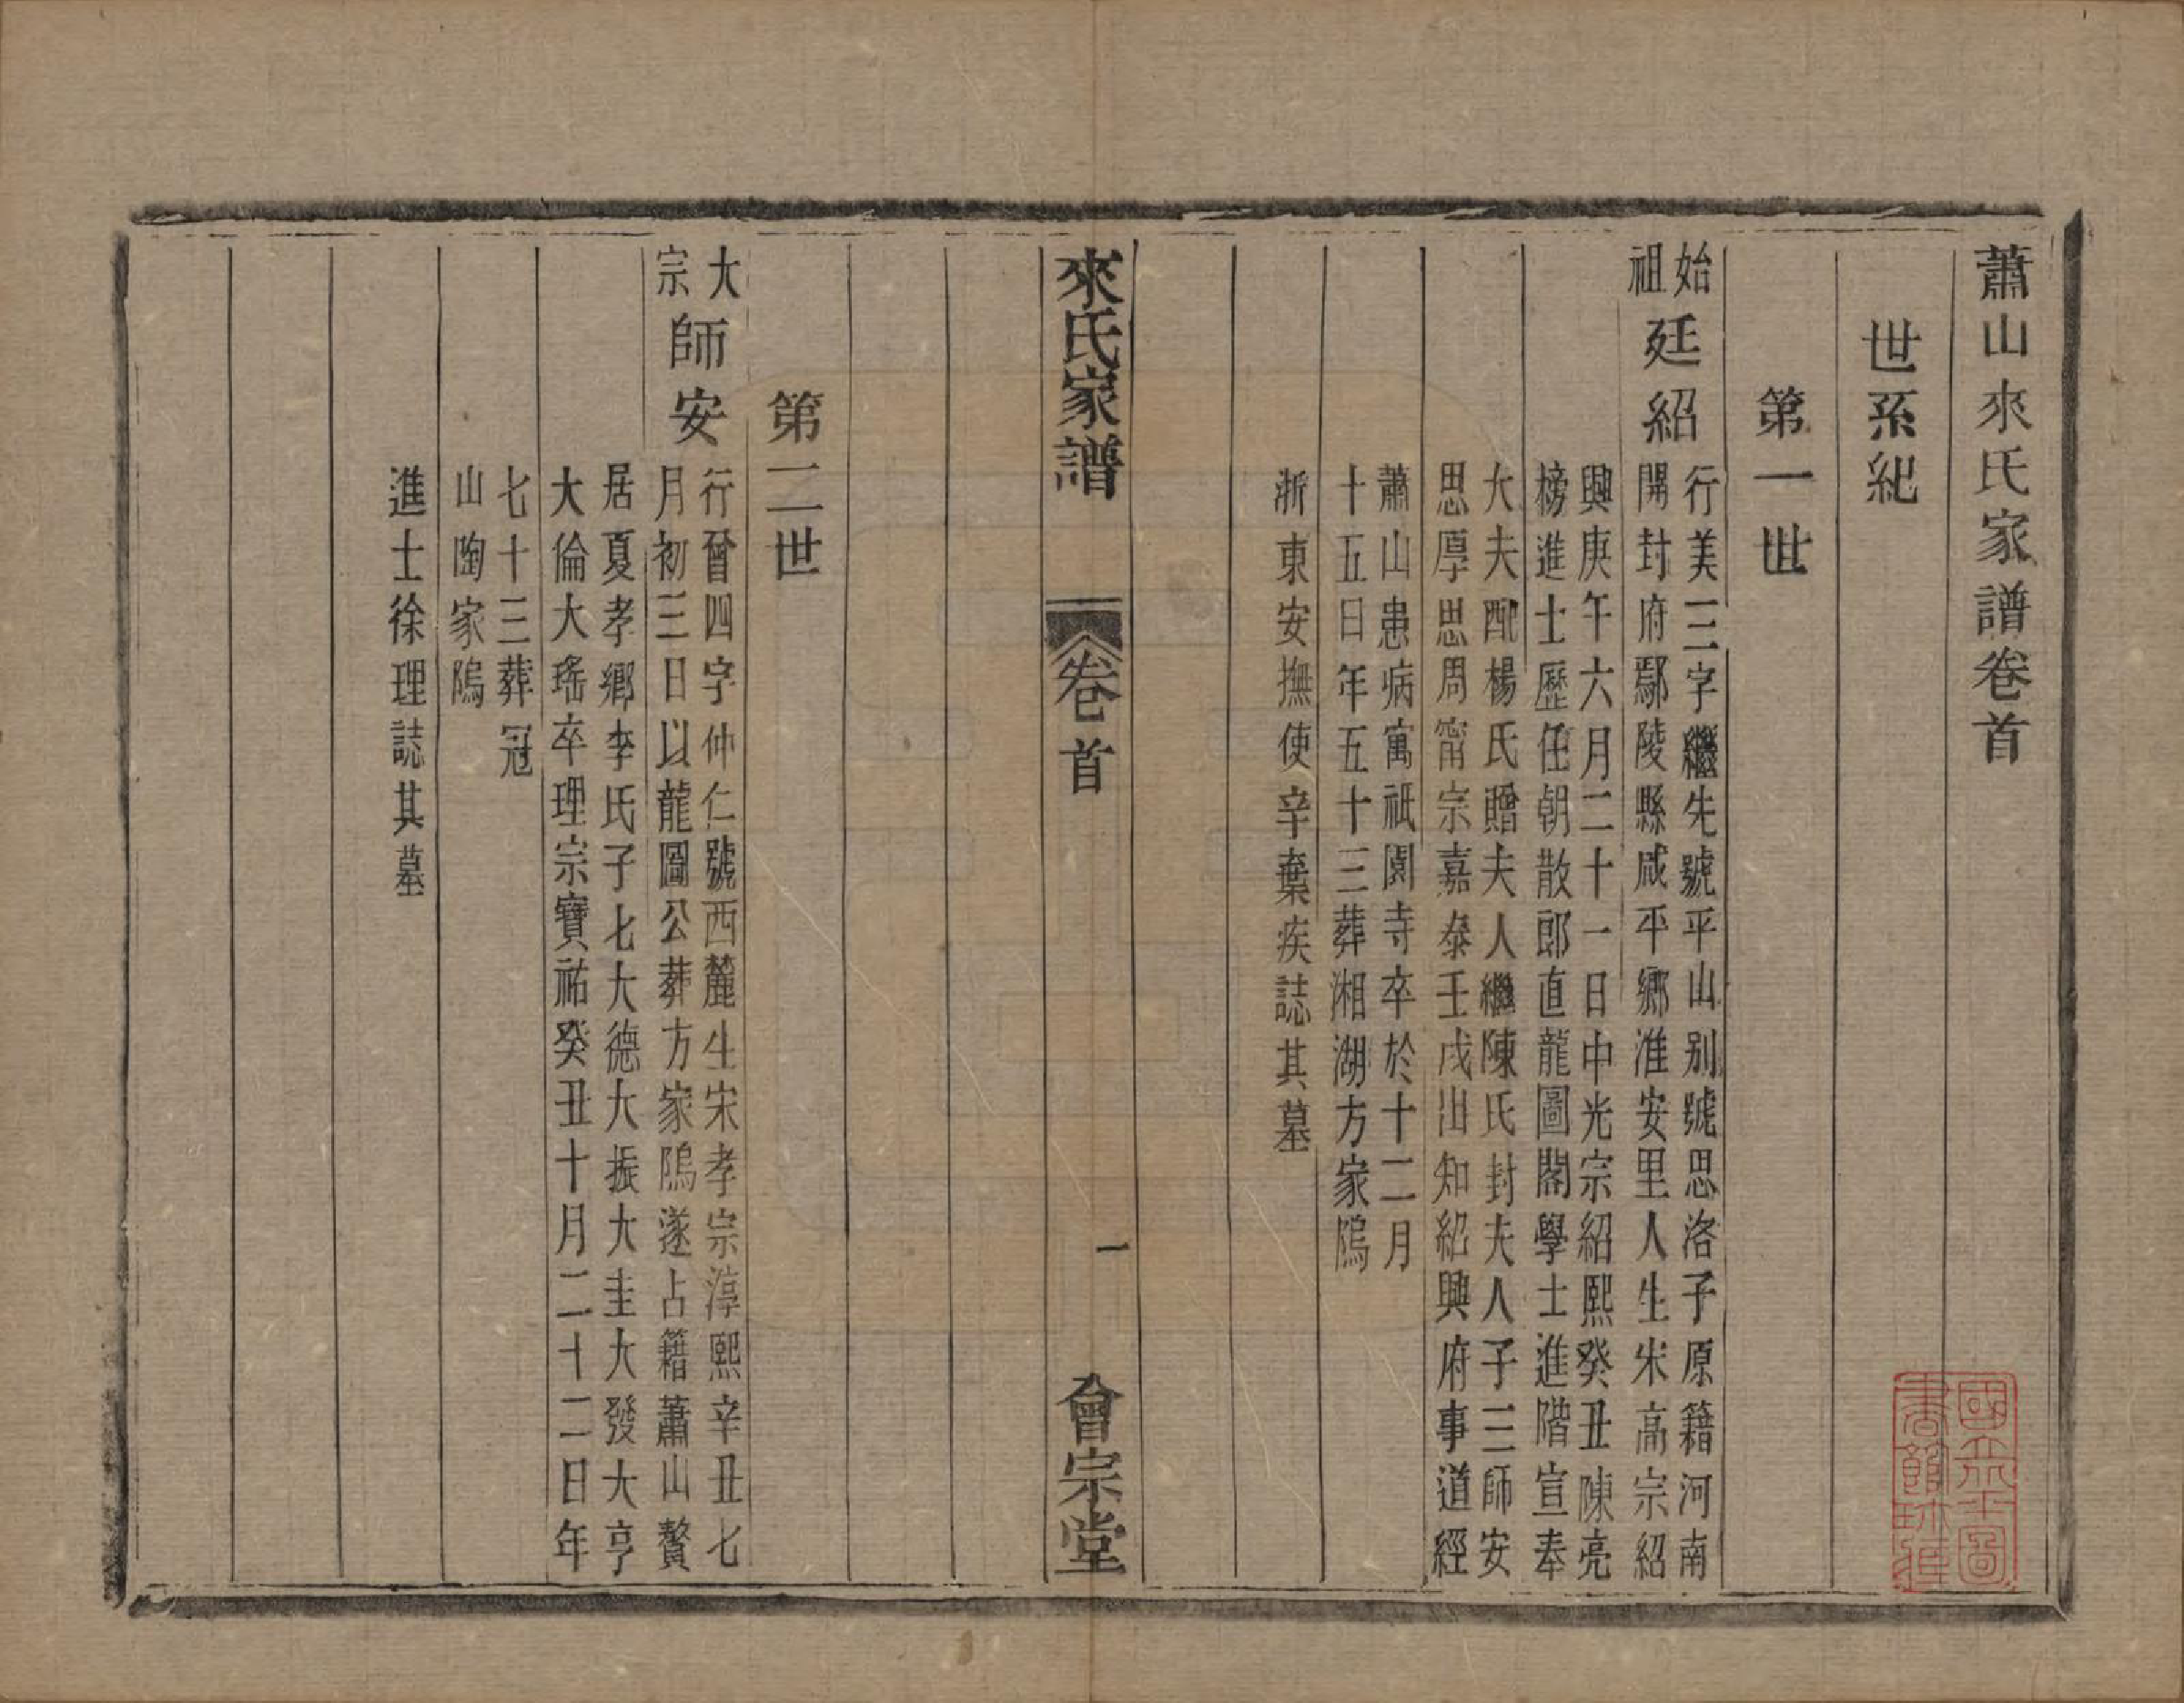 蕭山來氏家譜卷首
世系紀
第一世
始祖廷紹
行美三字繼先號平山别號思洛子原籍河南
開封府鄢陵縣咸平鄉淮安里人生宋高宗紹
興庚午六月二十一日中光宗紹熙癸丑陳亮
榜進士歷任朝散郎直龍圖閣學士進階宣奉
大夫配楊氏贈夫人繼陳氏封夫人子三師安
思厚思周甯宗嘉泰壬戌出知紹興府事道經
蕭山患病寓祇園寺卒於十二月
十五日年五十三葬湘湖方家隖
浙東安撫使辛棄疾誌其墓
來氏家譜 卷首 一 會宗堂
第二世
大宗師安
行晉四字仲仁號西麓生宋孝宗淳熙辛丑七
月初三日以龍圖公葬方家隖遂占籍蕭山贅
居夏孝鄉李氏子七大德大振大圭大發大亨
大倫大瑤卒理宗寶祐癸丑十月二十二日年
七十三葬冠
山陶家隖
進士徐理誌其墓
國立北平圖
書館珍藏